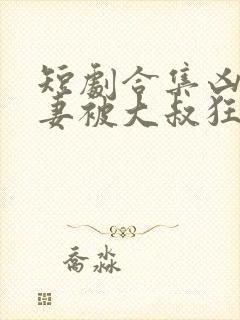 短劇合集凶
妻被大叔狂
喬淼